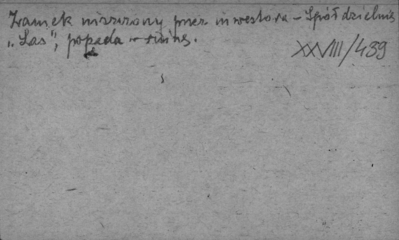 Zamek niszczony przez inwestora - Spółdzielnię
„Las”, popada w ruinę.
XXVIII/439